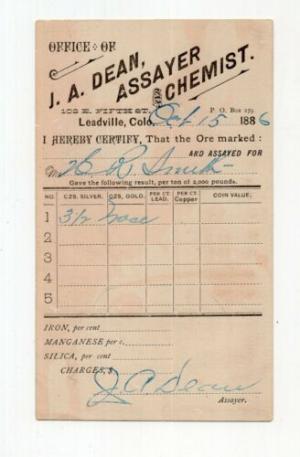 OFFICE OF
J. A. DEAN,
ASSAYER
AND CHEMIST.
108 E. FIFTH ST. P. O. Box
Leadville, Colo. Oct 15 1886
I HEREBY CERTIFY, That the Ore marked :
AND ASSAYED FOR
M H R Smith
Gave the following result, per ton of 2,000 pounds.
NO. OZS. SILVER. OZS. GOLD. PER CT. LEAD. PER CT. Copper COIN VALUE.
1 3½
2
3
4
5
IRON, per cent
MANGANESE per c.
SILICA, per cent
CHARGES, $
J. A. Dean
Assayer.